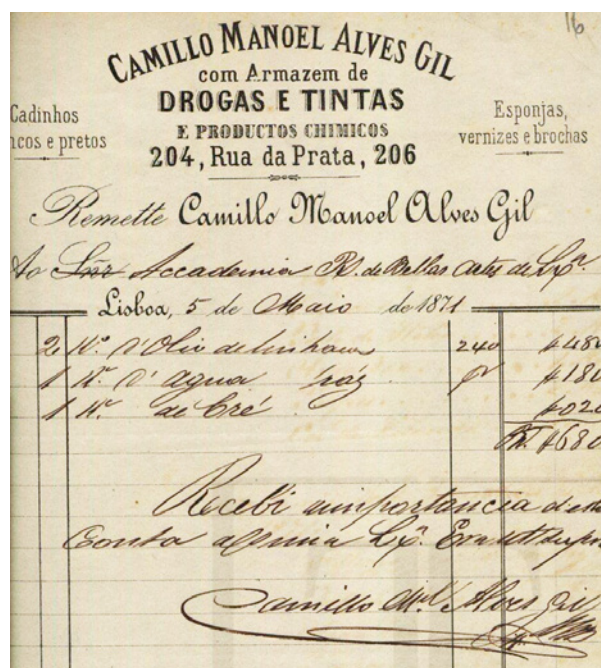 16
CAMILLO MANOEL ALVES GIL
com Armazem de
DROGAS E TINTAS
E PRODUCTOS CHIMICOS
204, Rua da Prata, 206
Cadinhos
ncos e pretos
Esponjas,
vernizes e brochas
Remette Camillo Manoel Alves Gil
Ao Snr Accademia R. de Bellas Artes de Lxª.
Lisboa, 5 de Maio de 1871
2 Kº. d'Olio de linhaça 240 $480
1 Kº. d'agua ráz $180
1 Kº. de Cré $020
$680
Recebi a importancia d'esta
Conta
Camillo Mel Alves Gil